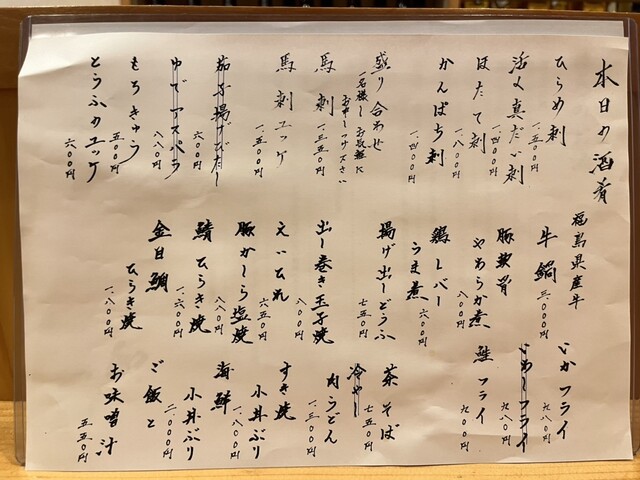 本日の酒肴
ひらめ刺
一、五〇〇円
活〆真だい刺
一、四〇〇円
ほたて刺
一、八〇〇円
かんぱち刺
一、四〇〇円
盛り合わせ
一名様〜お気軽に
お申しつけ下さい
馬刺
一、三五〇円
馬刺ユッケ
一、五〇〇円
茄子揚げびたし
六〇〇円
ゆでアスパラ
八八〇円
もろきゅう
五〇〇円
とうふのユッケ
六〇〇円
福島県産牛
牛鍋
三、〇〇〇円
豚軟骨
やわらか煮
八〇〇円
鶏レバー
うま煮
六〇〇円
揚げ出しどうふ
七五〇円
出し巻き玉子焼
八〇〇円
えいひれ
六五〇円
豚かしら塩焼
八八〇円
鯖ひらき焼
一、六〇〇円
金目鯛
ひらき焼
一、八〇〇円
いかフライ
九八〇円
いわしフライ
九八〇円
鮭フライ
九〇〇円
茶そば
七五〇円
冷や
肉うどん
一、三〇〇円
すき焼
小丼ぶり
一、八〇〇円
海鮮
小丼ぶり
二、〇〇〇円
ご飯と
お味噌汁
五五〇円